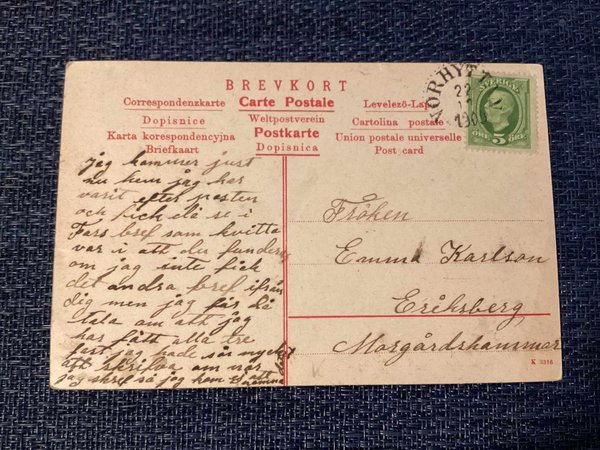 BREVKORT
Correspondenzkarte Carte Postale Levelező-Lap
Dopisnice Weltpostverein Cartolina postale
Karta korespondencyjna Postkarte Union postale universelle
Briefkaart Dopisnica Post card
NORRHYTTAN
22
190
SVERIGE
ÖRE 5 ÖRE
jag kommer just
nu hem jag har
varit efter posten
och fick då se i
Fars bref som kvitta
var i att du funderar
om jag inte fick
det andra bref ifrån
dig men jag får då
tala om att jag
har fått alla tre
fast jag hade så mycket
att skrifva om när
jag skref så jag kom ej att nämna
Fröken
Emma Karlson
Eriksberg
Morgårdshammar
K 3316